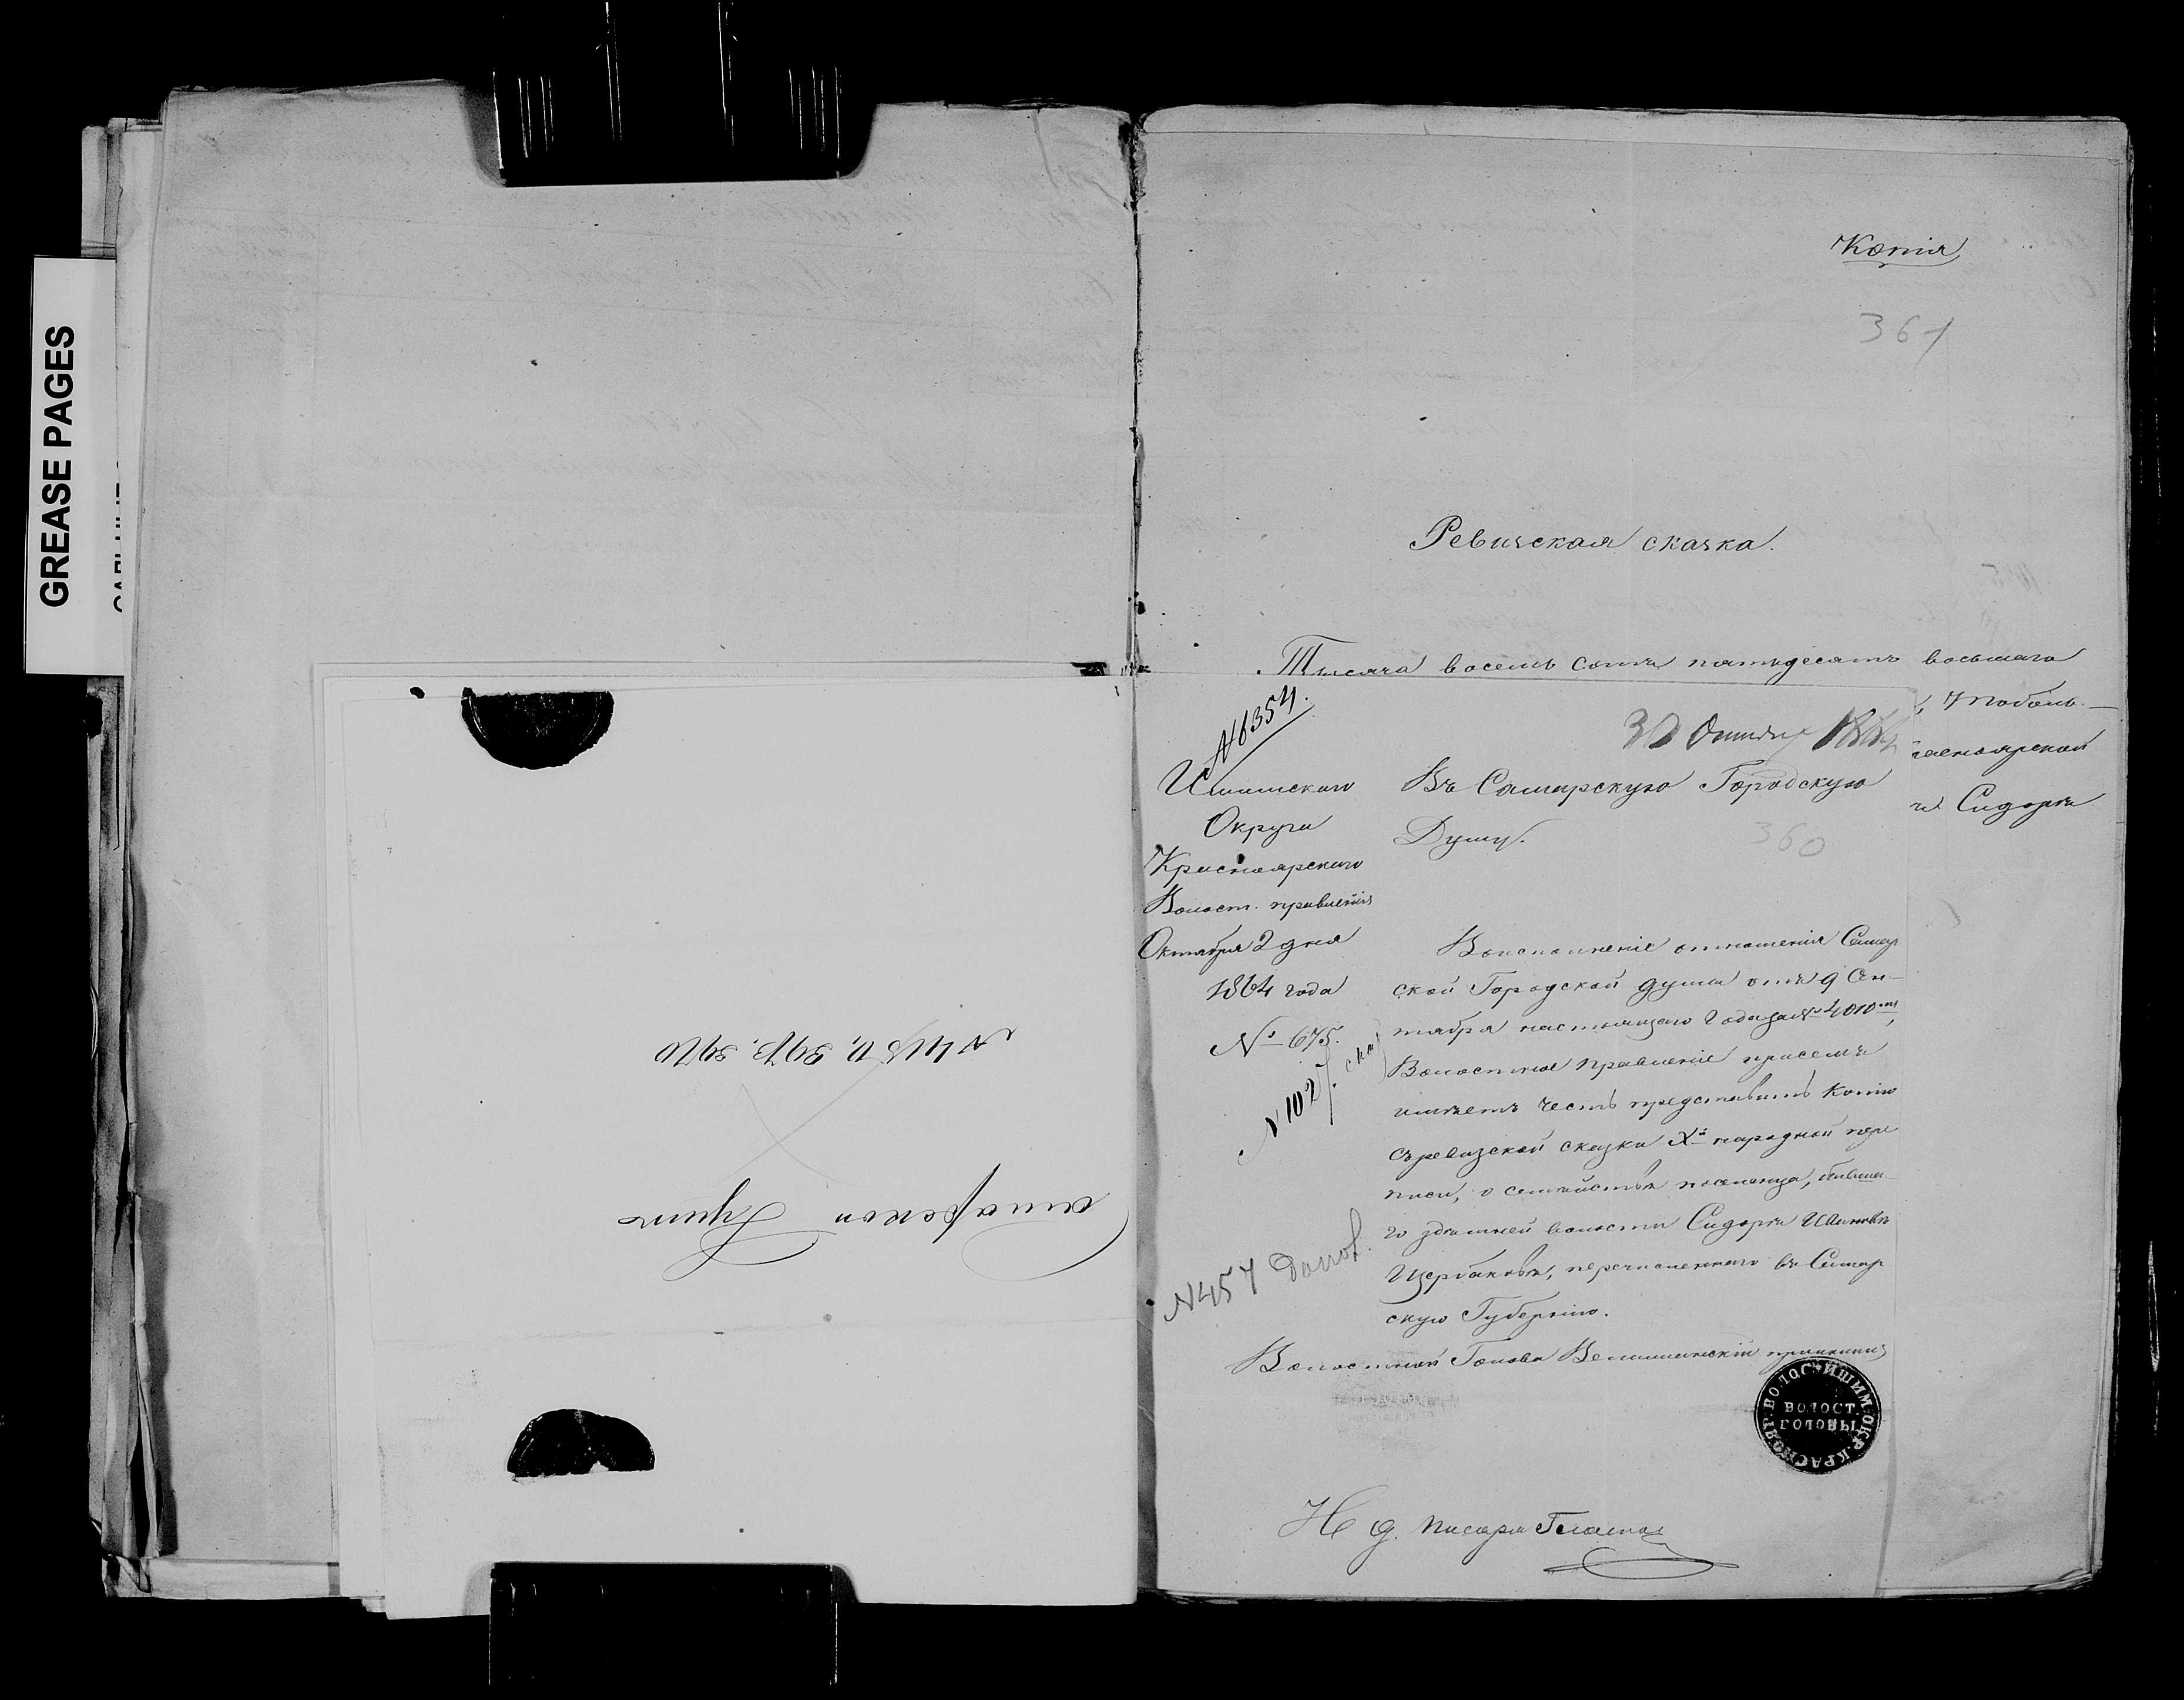 GREASE PAGES
Копія
361
Ревизская сказка.
Тысяча восемь сотъ пятьдесятъ восьмаго
, Тоболь-
расноярской
Сидора
№6354.
30 Октября 1864
Ишимскаго
Округа
Красноярскаго
Волост. правленія
Октября 2 дня
1864 года
№ 675.
№ 1027.
№457 Допол.
Въ Самарскую Городскую
Думу.
360
Воисполненіе отношенія Самар
ской Городской думы отъ 9 Сен-
тября настоящаго года за № 4010мъ,
Волостное правленіе присемъ
имѣетъ честь представить копію
съревизской сказки Xй народной пере
писи, о семействѣ поселенца, бывша-
го здѣшней волости Сидора Иванова
Щербакова, перечисленнаго въ Самар
скую Губернію.
Волостной Голова
ИШИМ. ОКР. КРАСНОЯР. ВОЛОС.
ВОЛОСТ.
ГОЛОВЫ
И д. писаря
Самарской Думы